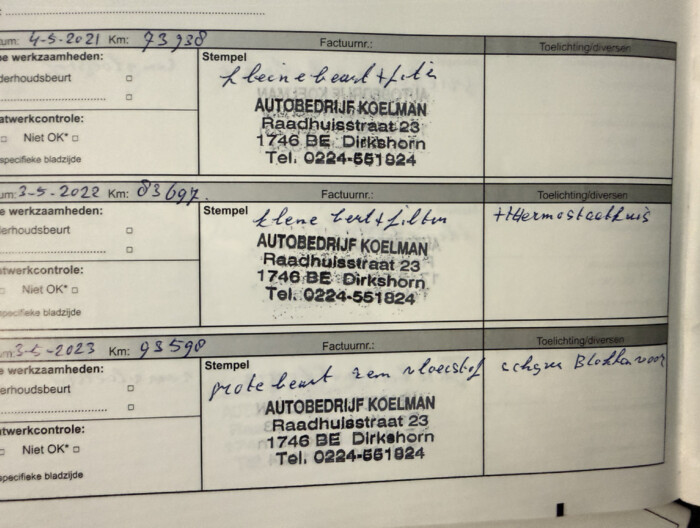 um: 4-5-2021 Km: 73938 Factuurnr.: Toelichting/diversen
e werkzaamheden: Stempel
derhoudsbeurt kleine beurt + filter
atwerkcontrole: AUTOBEDRIJF KOELMAN
Niet OK* Raadhuisstraat 23
specifieke bladzijde 1746 BE Dirkshorn
Tel. 0224-551824
um: 3-5-2022 Km: 83697. Factuurnr.: Toelichting/diversen
e werkzaamheden: Stempel
derhoudsbeurt kleine beurt + filters + thermostaathuis
atwerkcontrole: AUTOBEDRIJF KOELMAN
Niet OK* Raadhuisstraat 23
specifieke bladzijde 1746 BE Dirkshorn
Tel. 0224-551824
um: 3-5-2023 Km: 93598 Factuurnr.: Toelichting/diversen
e werkzaamheden: Stempel
erhoudsbeurt grote beurt rem vloeistof schyven Blokken voor
atwerkcontrole: AUTOBEDRIJF KOELMAN
Niet OK* Raadhuisstraat 23
specifieke bladzijde 1746 BE Dirkshorn
Tel. 0224-551824